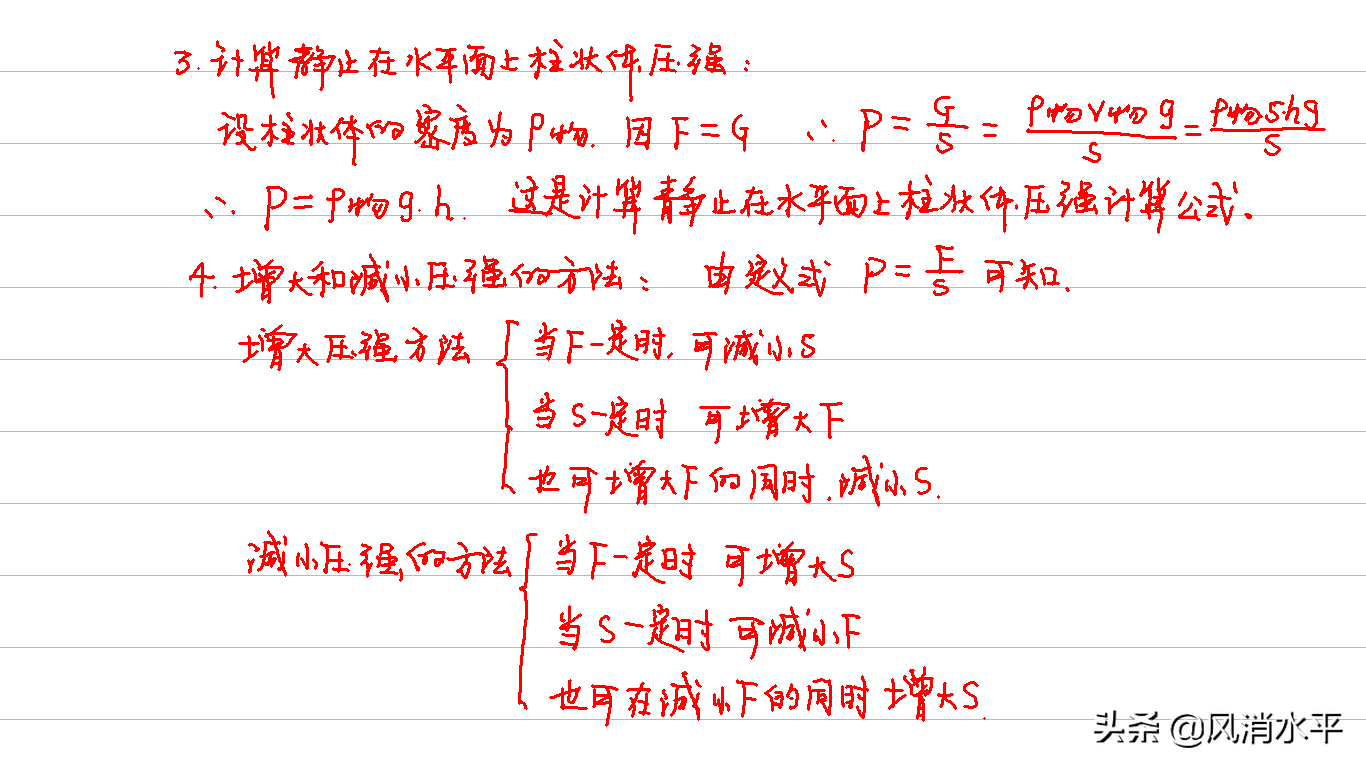 3. 计算静止在水平面上柱状体压强：
设柱状体的密度为ρ物. 因F=G ∴ P=G/S=ρ物V物g/S=ρ物Shg/S
∴ P=ρ物g.h. 这是计算静止在水平面上柱状体压强计算公式。
4. 增大和减小压强的方法： 由定义式 P=F/S 可知.
增大压强方法 { 当F一定时, 可减小S
当S一定时 可增大F
也可增大F的同时, 减小S.
减小压强的方法 { 当F一定时 可增大S
当S一定时 可减小F
也可在减小F的同时 增大S.
头条 @风消水平